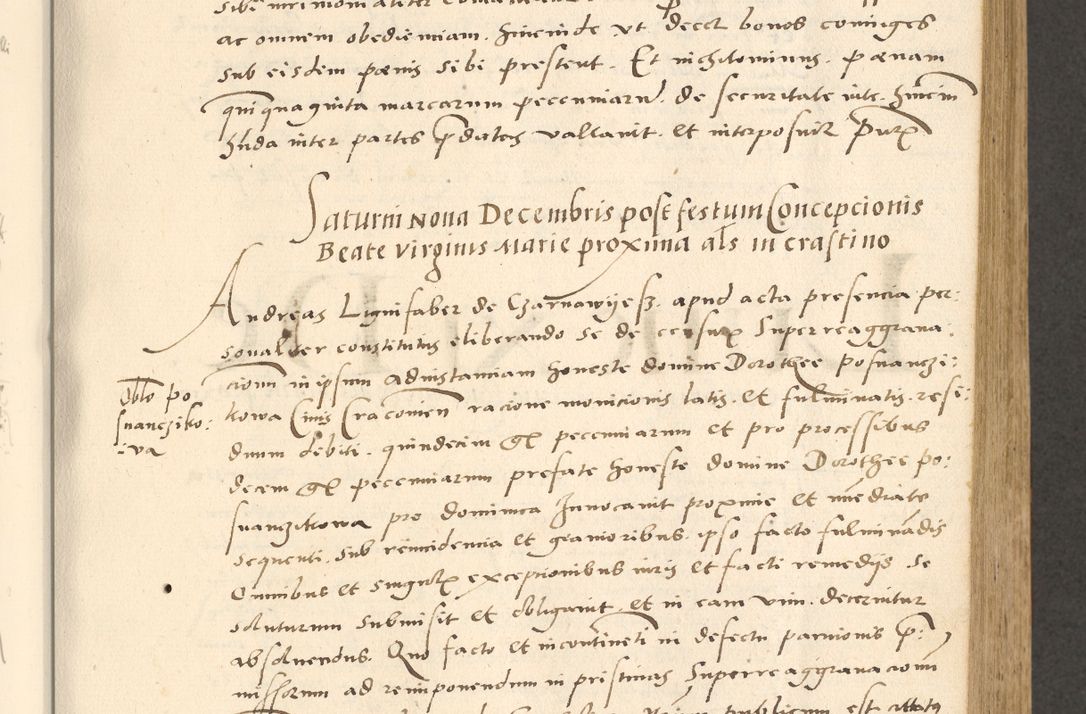 ac omnem obedienciam. hincinde ut decet bonos coniuges
sub eisdem poenis sibi prestent. Et nichilominus. poenam
quinquaginta marcarum pecuniarũ. de securitate vite. hincin
h̃nda inter partes p̃datas vallavit. et interposuit
Saturni Nona Decembris post festum Concepcionis
Beate Virginis Marie proxima als in crastino
Andreas Lignifaber de Czarnawyesz. apud acta presencia per:
sonaliter constitutus eliberando se de censur Superreaggrava:
cionũ in ipsum ad instanciam honeste domine Dorothee Posnanczi:
kowa Civis Cracovien racione monicionis latis. et fulminatis. resi:
duum debiti. quindecim gr pecuniarum et pro processibus
decem gr pecuniarum prefate honeste domine Dorothee Po:
snanczikowa pro dominica Invocavit proxime et imediate
sequenti. sub reincidencia et gravioribus. ipso facto fulminãdis
Omnibus et singulis exceptionibus iuris et facti remedijs se
soluturum submisit et obligavit. et in eam vim. decernitur
absoluendus. Quo facto et incontineti in defectu parcionis p̃:
missorum ad reimponendum in pristinas Superreaggravacionũ
publicum est
Oblo Po
snancziko:
:va